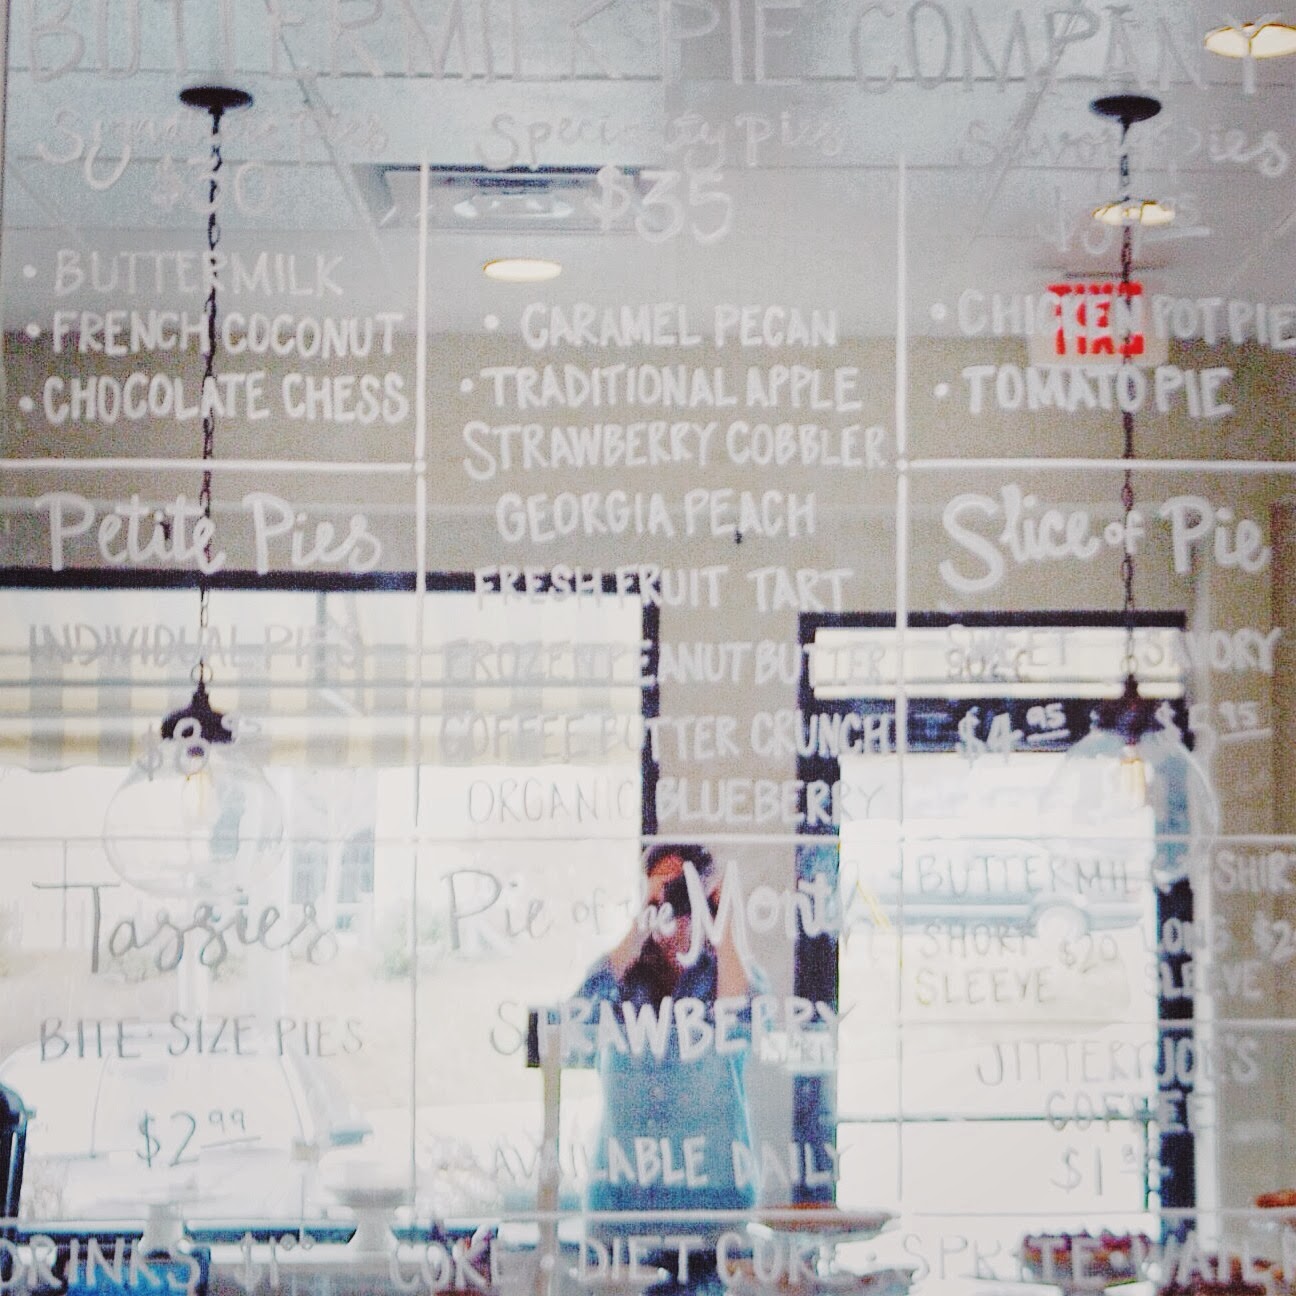 BUTTERMILK PIE COMPANY
Signature Pies
$30
• BUTTERMILK
• FRENCH COCONUT
• CHOCOLATE CHESS
Petite Pies
INDIVIDUAL PIES
Tassies
BITE-SIZE PIES
$2.99
Specialty Pies
$35
• CARAMEL PECAN
• TRADITIONAL APPLE
STRAWBERRY COBBLER
GEORGIA PEACH
FRESH FRUIT TART
FROZEN PEANUT BUTTER
COFFEE BUTTER CRUNCH
ORGANIC BLUEBERRY
Pie of the Month
STRAWBERRY
AVAILABLE DAILY
Savory Pies
• CHICKEN POT PIE
• TOMATO PIE
Slice of Pie
SWEET SAVORY
$4.95 $5.95
BUTTERMILK SHIRT
SHORT $20 LONG
SLEEVE SLEEVE
JITTERY JOE'S
COFFEE
DRINKS $1.00 COKE • DIET COKE • SPRITE • WATER